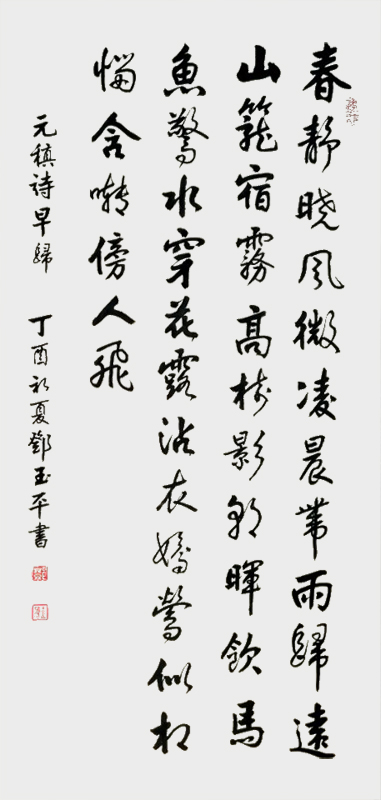 春靜曉風微凌晨帶雨歸遠
山籠宿霧高樹影朝暉飲馬
魚驚水穿花露沾衣嬌鶯似相
惱含囀傍人飛
元稹詩早歸 丁酉初夏鄧玉平書